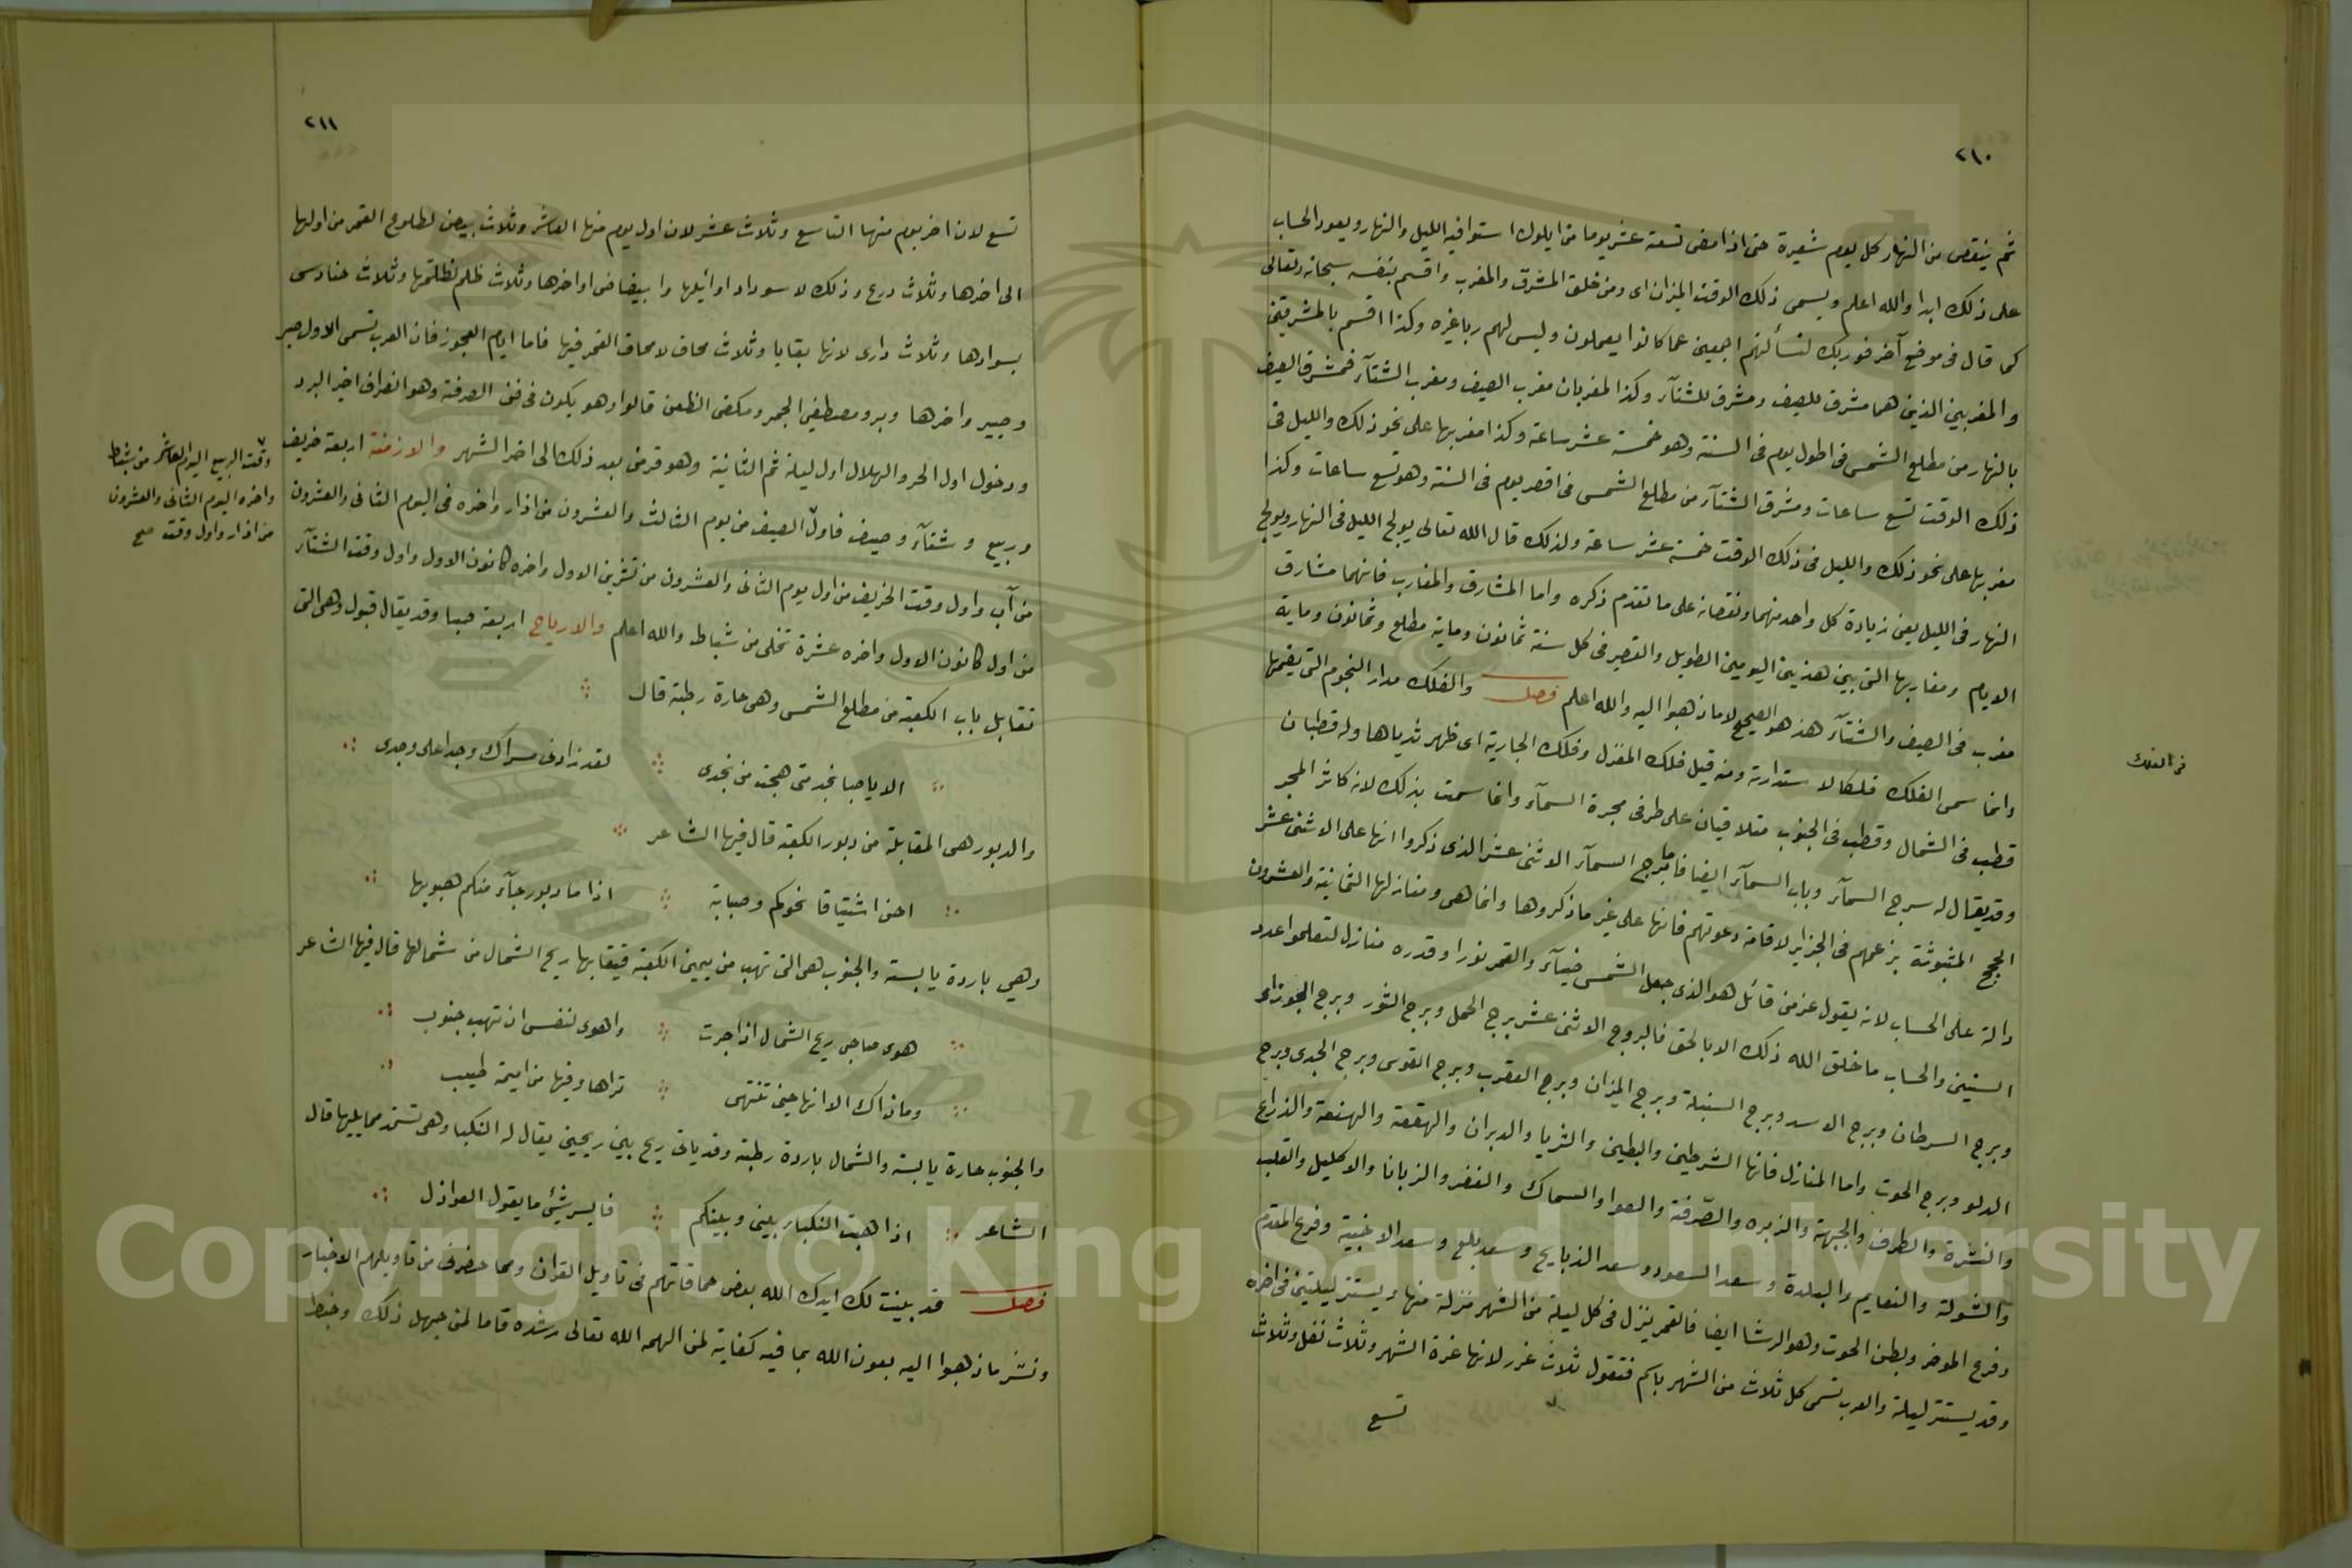 ٢١٠
ثم ينقص من النهار كل يوم شعيرة حتى اذا مضى تسعة عشر يوما من ايلول استوا فيه الليل والنهار ويعود الحساب
على ذلك ابدا والله اعلم ويسمى ذلك الوقت الميزان اى ومن خلق المشرق والمغرب واقسم بنفسه سبحانه وتعالى
كما قال فى موضع آخر فوربك لنسألنهم اجمعين عما كانوا يعملون وليس لهم ربا غيره وكذا اقسم بالمشرقين
والمغربين الذين هما مشرق للصيف ومشرق للشتآء وكذا المغربان مغرب الصيف ومغرب الشتآء فمشرق الصيف
بالنهار من مطلع الشمس فى اطول يوم فى السنة وهو خمسة عشر ساعة وكذا مغربها على نحو ذلك والليل فى
ذلك الوقت تسع ساعات ومشرق الشتآء من مطلع الشمس فى اقصر يوم فى السنة وهو تسع ساعات وكذا
مغربها على نحو ذلك والليل فى ذلك الوقت خمسة عشر ساعة ولذلك قال الله تعالى يولج الليل فى النهار ويولج
النهار فى الليل يعنى زيادة كل واحد منهما ونقصانه على ما تقدم ذكره واما المشارق والمغارب فانهما مشارق
الايام ومغاربها التى بين هذين اليومين الطويل والقصير فى كل سنة ثمانون وماية مطلع وثمانون وماية
مغرب فى الصيف والشتآء هذ هو الصحيح لا ما ذهبوا اليه والله اعلم فصل والفلك مدار النجوم التى يضمها
وانما سمى الفلك فلكا لاستدارته ومنه قيل فلك المغزل وفلك الجارية اى ظهر ثدياها وله قطبان
قطب فى الشمال وقطب فى الجنوب متلاقيان على طرفى مجرة السمآء وانما سمت بذلك لانه كاثر المجر
وقد يقال له سرج السمآء وباب السمآء ايضا فاما برج السمآء الاثنى عشر الذى ذكروا انها على الاثنى عشر
الحجج المثبوثة بزعمهم فى الجزاير لاقامة دعوتهم فانها على غير ما ذكروها وانما هى ومنازلها الثمانية والعشرون
دالة على الحساب لانه يقول عز من قائل هو الذى جعل الشمس ضيآء والقمر نورا وقدره منازل لتعلموا عدد
السنين والحساب ما خلق الله ذلك الا بالحق فالبروج الاثنى عشر برج الحمل وبرج الثور وبرج الجوزاء
وبرج السرطان وبرج الاسد وبرج السنبلة وبرج الميزان وبرج العقرب وبرج القوس وبرج الجدى وبرج
الدلو وبرج الحوت واما المنازل فانها الشرطين والبطين والثريا والدبران والهقعة والهنعة والذراع
والنثرة والطرف والجبهة والزبره والصرفة والعوا والسماك والغفر والزبانا والاكليل والقلب
والشولة والنعايم والبلدة وسعد السعود وسعد الذبايح وسعد بلع وسعد الاخبية وفرغ المقدم
وفرغ الموخر وبطن الحوت وهو الرشا ايضا فالقمر ينزل فى كل ليلة من الشهر منزلة منها ويستتر ليلتين فى اخره
وقد يستتر ليلة والعرب تسمى كل ثلاث من الشهر باسم فتقول ثلاث غرر لانها غرة الشهر وثلاث نفل وثلاث
تسع
فى الفلك
٢١١
تسع لان اخر يوم منها التاسع وثلاث عشر لان اول يوم منها العاشر وثلاث بيض لطلوع القمر من اولها
الى اخرها وثلاث درع وذلك لاسوداد اوائلها وابيضاض اواخرها وثلاث ظلم لظلمتها وثلاث حنادس
بسوادها وثلاث دارى لانها بقايا وثلاث محاق لامحاق القمر فيها فاما ايام العجوز فان العرب تسمى الاول صبر
وصبير واخرها وبر ومصطفى الجمر ومكفى الظعن قالوا وهو يكون فى فنى الصرفة وهو انصراف اخير البرد
ودخول اول الحر والهلال اول ليلة ثم الثانية وهو قمر من بعد ذلك الى اخر الشهر والازمنة اربعة خريف
وربيع وشتآء وصيف فاول الصيف من يوم الثالث والعشرون من اذار واخره فى اليوم الثانى والعشرون
من آب واول وقت الخريف من اول يوم الثانى والعشرون من تشرين الاول واخره كانون الاول واول وقت الشتآء
من اول كانون الاول واخره عشرة تخلى من شباط والله اعلم والارياح اربعة صبا وقد يقال قبول وهى التى
تقابل باب الكعبة من مطلع الشمس وهى حارة رطبة قال
الا يا صبا نجد متى هجت من نجدى لقد زادنى مسراك وجدا على وجدى
والدبور هى المقابلة من دبور الكعبة قال فيها الشاعر
احن اشتياقا نحوكم وصبابة اذا ما دبور جآء منكم هبوبها
وهي باردة يابسة والجنوب هى التى تهب من يمين الكعبة فيقابها ريح الشمال من شمالها قال فيها الشاعر
هوى صاحبى ريح الشمال اذا جرت واهوى لنفسى ان تهب جنوب
وما ذاك الا انها حين تنتهى تراها وفيها من اميمة طيب
والجنوب حارة يابسة والشمال باردة رطبة وقد ياتى ريح بين ريحين يقال له النكبا وهى تستمد مما يليها قال
الشاعر اذا هبت النكبا ربينى وبينكم فايسر شئ ما يقول العواذل
فصل قد بينت لك ايدك الله بعض حماقاتهم فى تاويل القران ومما حضرنى من تاويلهم الاخبار
ونشر ما ذهبوا اليه بعون الله بما فيه كفاية لمن الهمه الله تعالى رشده فاما لمن جهل ذلك وخبط
وقت الربيع اليوم العاشر من شباط
واخره اليوم الثانى والعشرون
من اذار واول وقت صح
Copyright © King Saud University
195